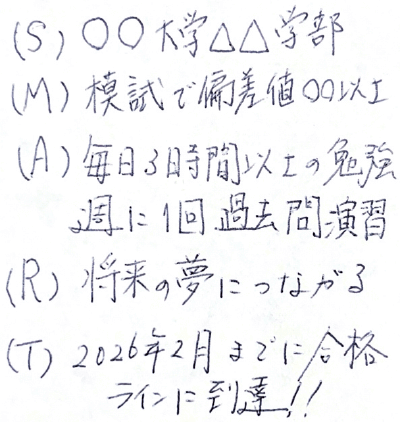 (S) 〇〇大学△△学部
(M) 模試で偏差値〇〇以上
(A) 毎日3時間以上の勉強
週に1回過去問演習
(R) 将来の夢につながる
(T) 2026年2月までに合格
ラインに到達!!